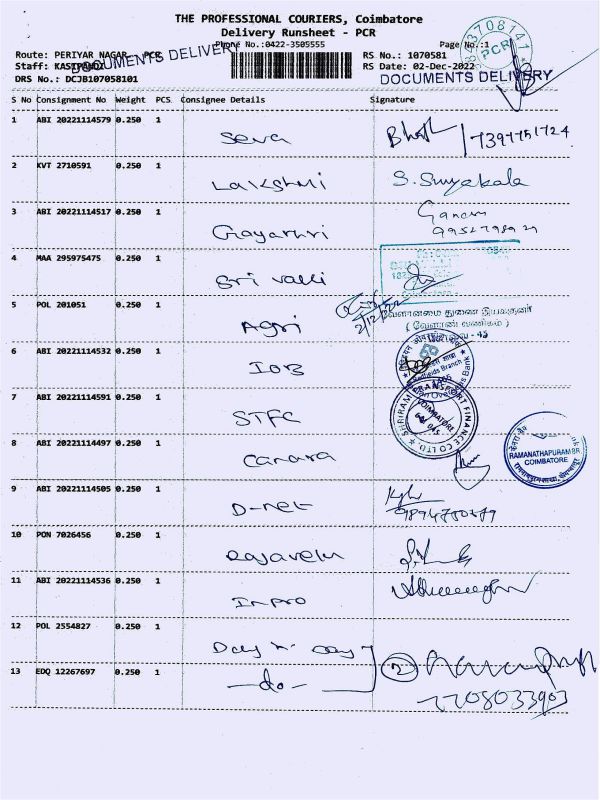 THE PROFESSIONAL COURIERS, Coimbatore
Delivery Runsheet - PCR
Phone No.:0422-3505555
Page No.:1
Route: PERIYAR NAGAR, PCR
RS No.: 1070581
Staff: KASIPANDI
RS Date: 02-Dec-2022
DRS No.: DCJB107058101
DOCUMENTS DELIVERY
DOCUMENTS DELIVERY
PCR
S No Consignment No Weight PCS. Consignee Details Signature
1 ABI 20221114579 0.250 1 Seva 7397751724
2 KVT 2710591 0.250 1 Lakshmi S. Suryakala
3 ABI 20221114517 0.250 1 Gayathri
4 MAA 295975475 0.250 1 Sri Valli
2/12/22
வேளாண்மை துணை இயக்குனர்
5 POL 201051 0.250 1 Agri ( வேளாண் வணிகம் )
6 ABI 20221114532 0.250 1 IOB
7 ABI 20221114591 0.250 1 STFC
SHRIRAM TRANSPORT FINANCE CO LTD
COIMBATORE
8 ABI 20221114497 0.250 1 Canara
RAMANATHAPURAM BR
COIMBATORE
9 ABI 20221114505 0.250 1 D-net
10 PON 7026456 0.250 1 Rajavelu
11 ABI 20221114536 0.250 1 Inpro
12 POL 2554827 0.250 1 Day n Day
13 EDQ 12267697 0.250 1 -do- 2
7708033903